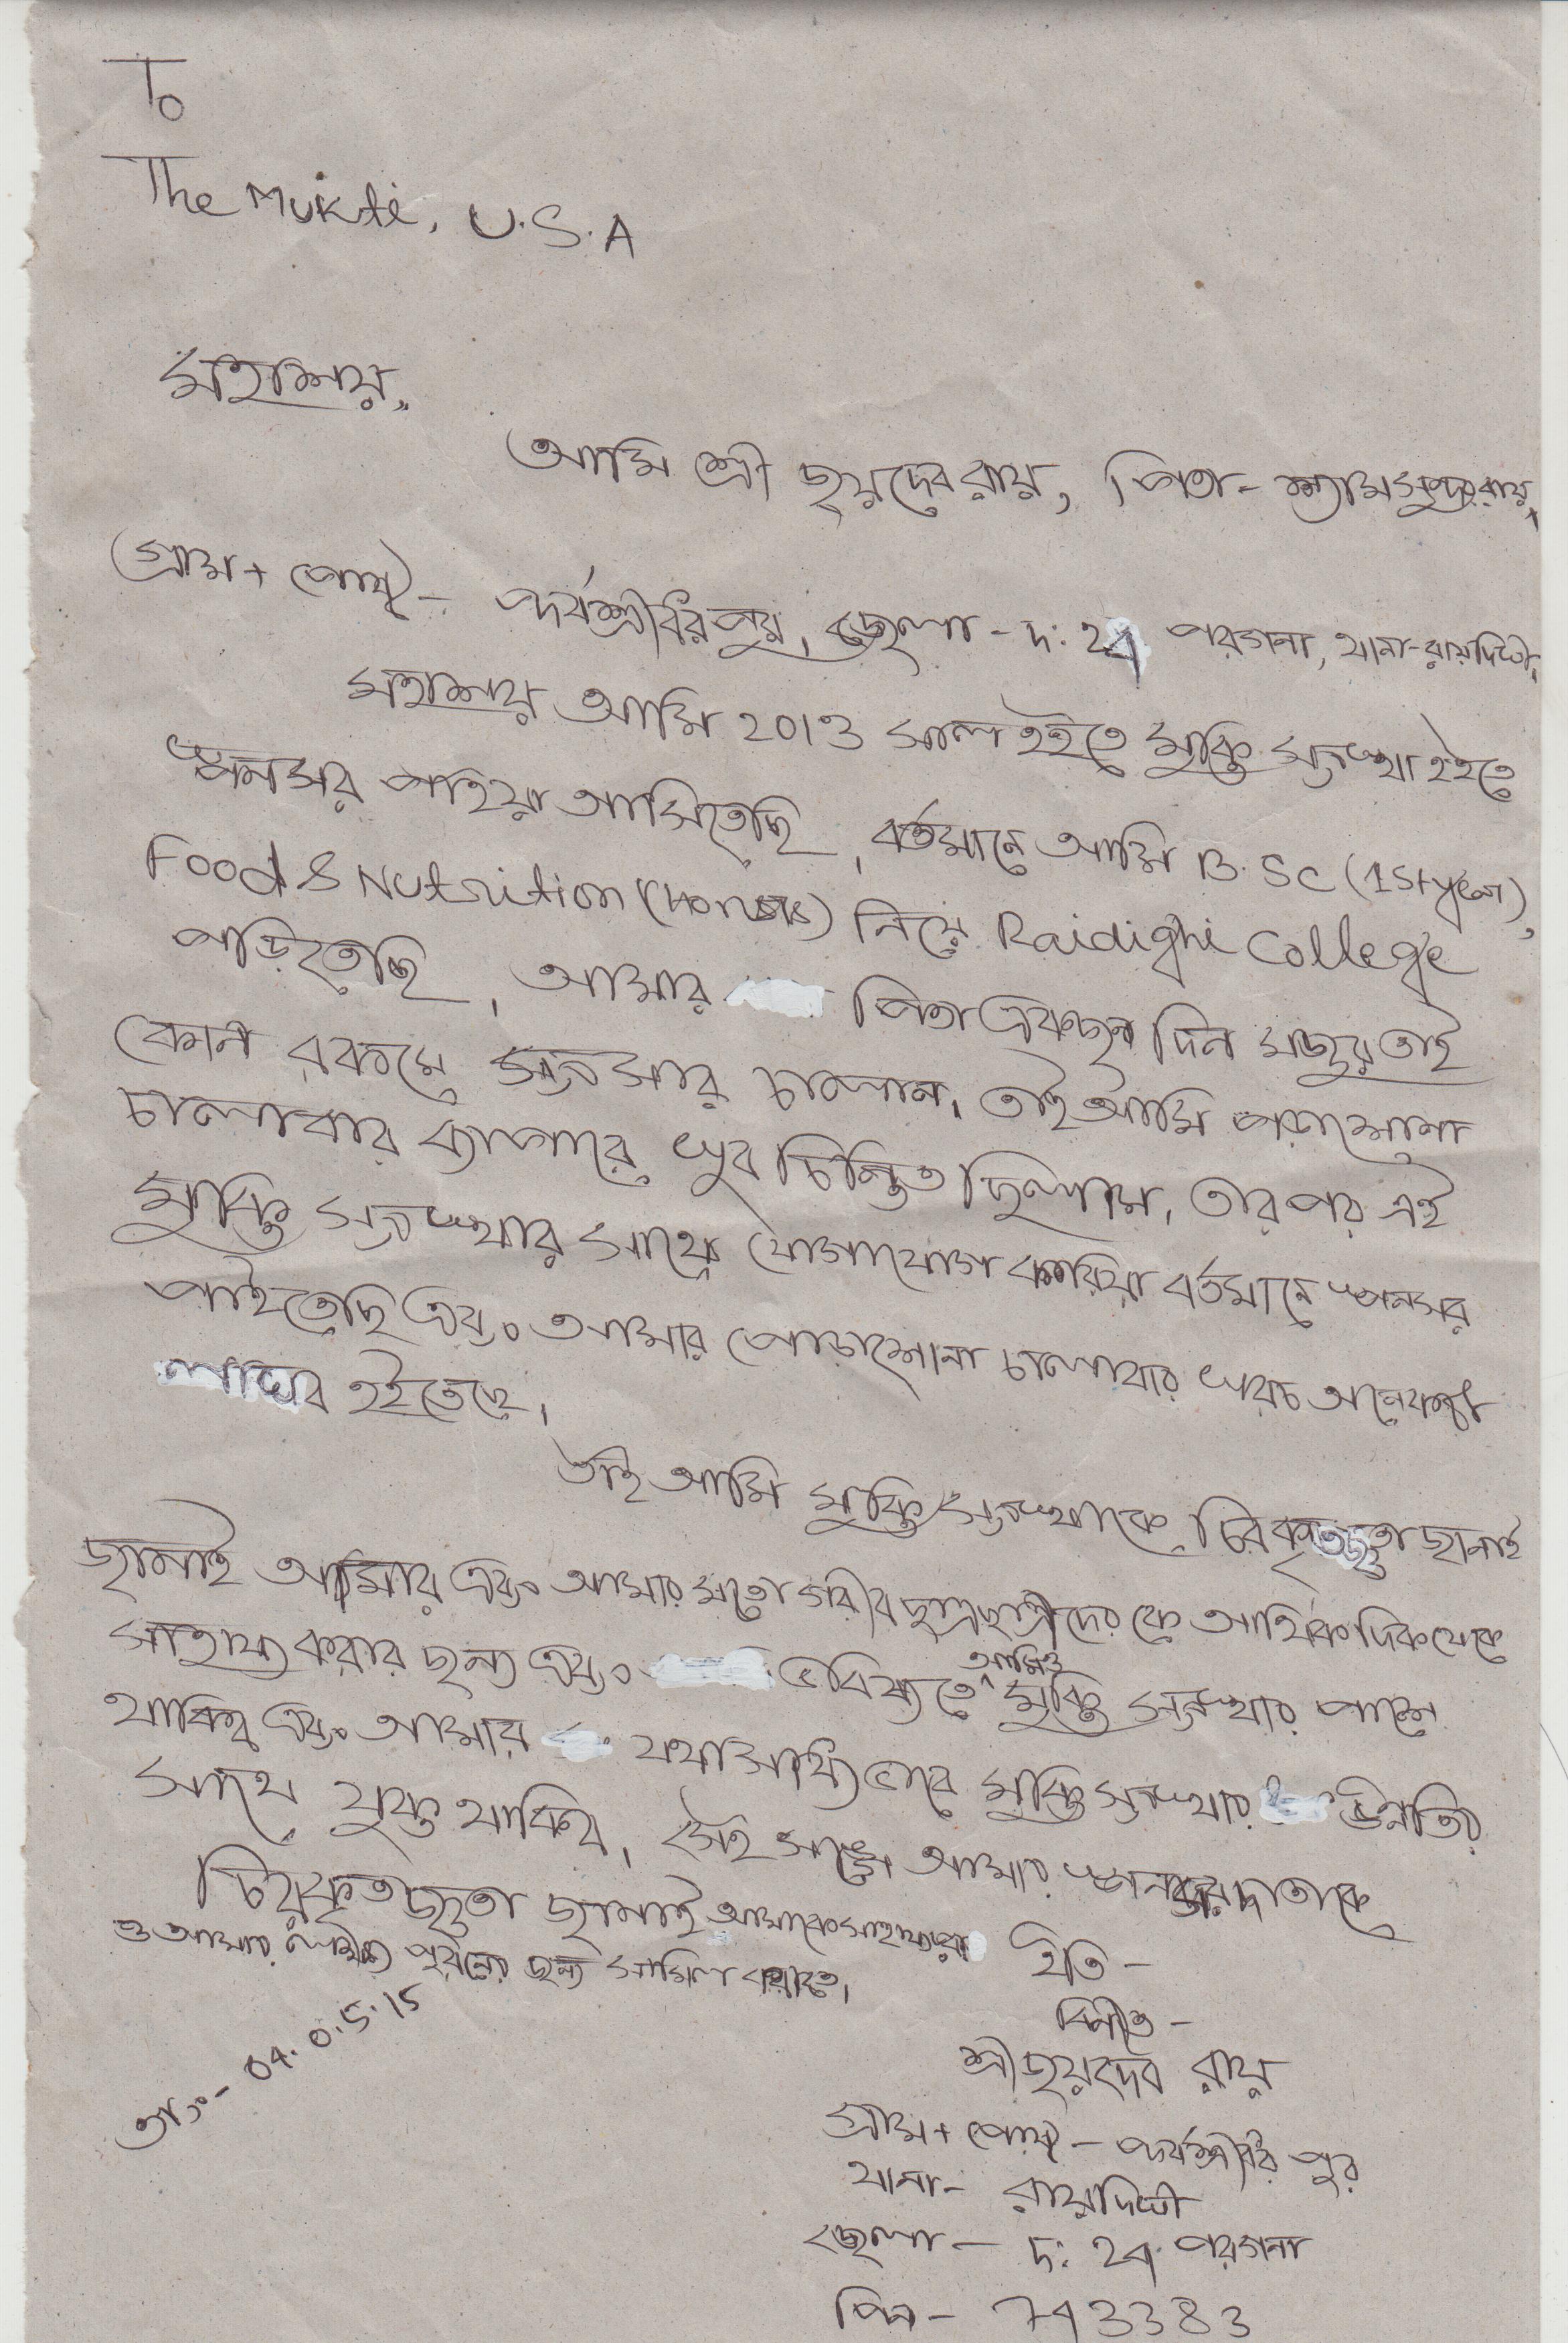 To
The Mukti, U.S.A
মহাশয়,,
আমি শ্রী জয়দেব রায়, পিতা - শ্যামসুন্দর রায়,
গ্রাম + পোষ্ট - পূর্বশ্রীধরপুর, জেলা - দ: 24 পরগনা, থানা - রায়দিঘী,
মহাশয় আমি 2013 সাল হইতে মুক্তি সংস্থা হইতে
স্পনসর পাইয়া আসিতেছি, বর্তমানে আমি B.Sc (1st year),
Food & Nutrition (Honours) নিয়ে Raidighi College
পড়িতেছি, আমার পিতা একজন দিন মজুর তাই
কোন রকমে সংসার চালান, তাই আমি পড়াশোনা
চালাবার ব্যাপারে খুব চিন্তিত ছিলাম, তারপর এই
মুক্তি সংস্থার সাথে যোগাযোগ করিয়া বর্তমানে স্পনসর
পাইতেছি এবং আমার পোড়াশোনা চালাবার খরচ অনেকটা
লাঘব হইতেছে,
তাই আমি মুক্তি সংস্থাকে চিরকৃতজ্ঞতা জানাই
জানাই আমার এবং আমার মতো গরীব ছাত্রছাত্রীদের কে আর্থিক দিক থেকে
সাহায্য করার জন্য এবং ভবিষ্যতে আমিও মুক্তি সংস্থার পাশে
থাকিব এবং আমার যথাসাধ্যি ভাবে মুক্তি সংস্থার উন্নতির
সাথে যুক্ত থাকিব, সেই সঙ্গে আমার স্পনসরদাতাকে
চিরকৃতজ্ঞতা জানাই আমাকে সাহায্য
ও আমার লক্ষ্য পূরনের জন্য সামিল করাতে,
ইতি -
বিনীত -
শ্রী জয়দেব রায়
তাং - 04.05.15
গ্রাম + পোষ্ট - পূর্বশ্রীধর পুর
থানা - রায়দিঘী
জেলা - দ: 24 পরগনা
পিন - 743383